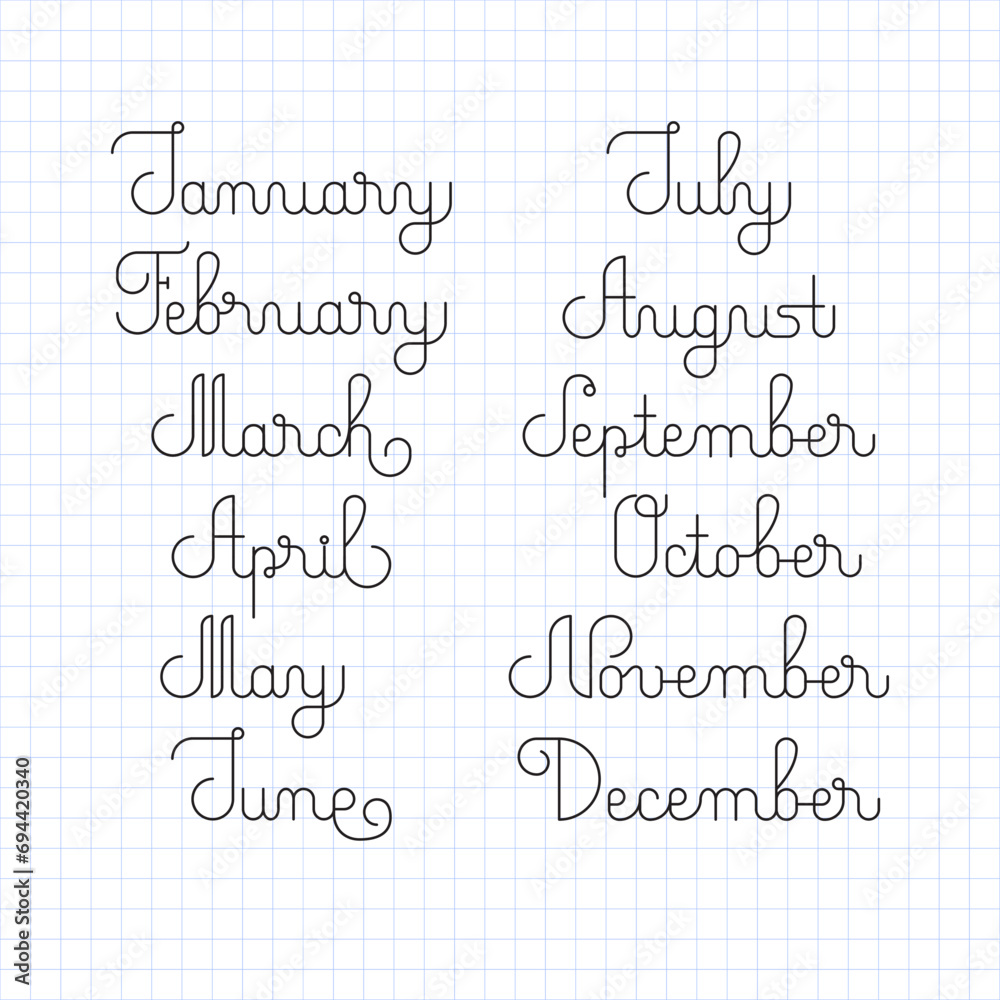 January
February
March
April
May
June
July
August
September
October
November
December
Adobe Stock | #694420340